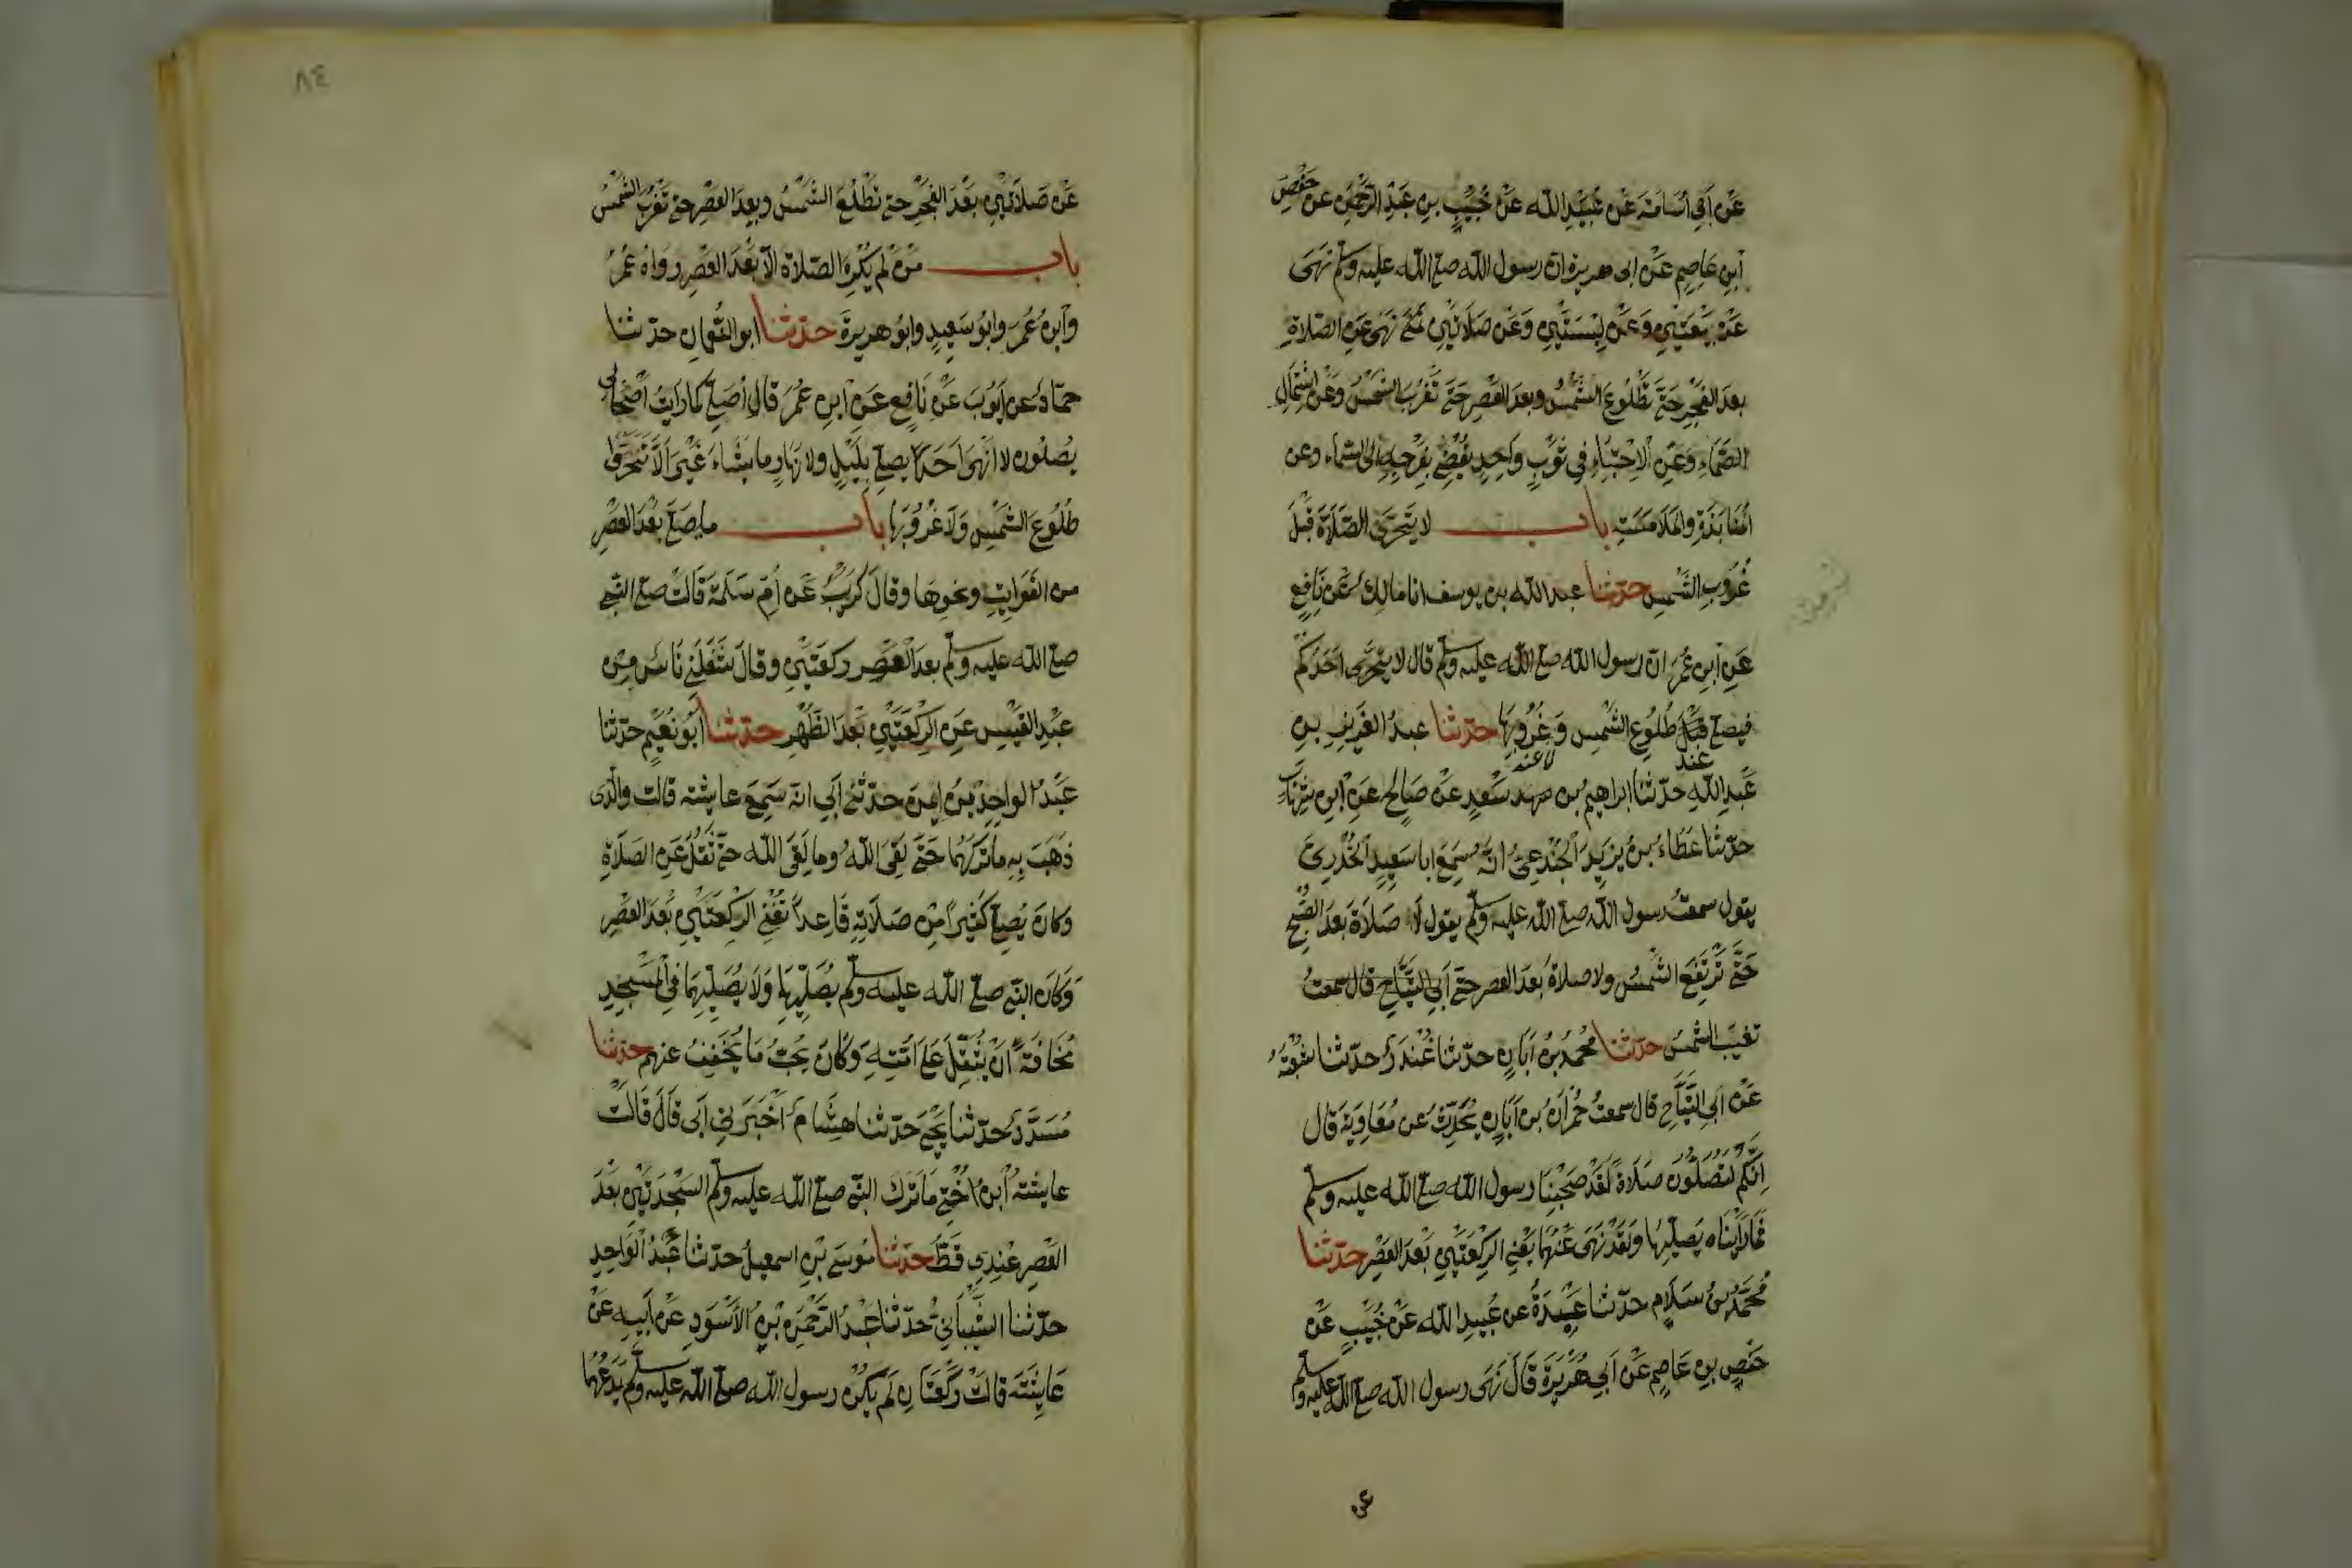 عَنْ اَبِي اُسَامَةَ عَنْ عُبَيْدِ الله عَنْ خُبَيْبِ بنِ عَبْدِ الرَّحْمٰنِ عن حَفْصِ
ابنِ عَاصِمٍ عَنْ ابى هريرة ان رسول الله صلى الله عليه وسلم نَهَى
عَنْ بَيْعَتَيْنِ وَعَنْ لِبْسَتَيْنِ وَعَنْ صَلَاتَيْنِ نَهَى عَنِ الصَّلاةِ
بعدَ الفَجْرِ حَتَّى تَطْلُوعَ الشَّمْسُ وبعدَ العَصْرِ حَتَّى تَغْرُبَ الشمْسُ وَعَنْ اشْتِمَالِ
الصَّمَّاءِ وَعَنِ الاِحْتِبَاءِ فِي ثَوْبٍ وَاحِدٍ يُفْضِي بِفَرْجِهِ الى السَّمَاء وعن
المُنَابَذَةِ والمُلَامَسَةِ باب لا يَتَحَرَّى الصَّلَاةَ قَبْلَ
غُرُوبِ الشَّمسِ حدّثنا عبد الله بن يوسف انا مَالِكٌ عَنْ نَافِعٍ
عَنِ ابنِ عُمَرَ ان رسول الله صلى الله عليه وسلم قال لا يتحَرَّى اَحَدُكُم
فيصلى قَبْلَ طُلُوعِ الشَّمْسِ وَغُرُوبِهَا حدّثنا عبدُ العَزِيزِ بنِ
عند لا عند
عَبْدِ اللهِ حدّثنا ابراهيمُ بن سَعْدٍ عَنْ صَالِحٍ عَنِ ابنِ شِهَابٍ
حدّثنا عَطَاءُ بنُ يزِيدَ الجُنْدَعِىُّ انَّهُ سَمِعَ ابا سَعِيدٍ الخُدْرِىَّ
يقول سمعتُ رسول الله صلى الله عليه وسلم يقول لَا صَلَاةَ بَعْدَ الصُّبْحِ
حَتَّى تَرْتَفِعَ الشَّمْسُ ولا صلاةَ بعدَ العصر حتّى اَبِي التَّيَّاحِ قال سمعتُ
تغيبَ الشمسُ حدّثنا مُحمدُ بنُ اَبَانٍ حدّثنا غُنْدَرٌ حدّثنا شُعْبَةُ
عَنْ اَبِي التَّيَّاحِ قال سمعتُ حُمْرَانَ بْنَ اَبَانٍ يُحَدِّثُ عن مُعَاوِيَةَ قَالَ
اِنَّكُمْ لَتُصَلُّونَ صَلَاةً لَقَدْ صَحِبْنَا رسول الله صلى الله عليه وسلم
فَمَا رَاَيْنَاه يُصَلِّيهَا وَلَقَدْ نَهَى عَنْهُمَا يَعْنِى الرَّكْعَتَيْنِ بَعْدَ العَصْرِ حدّثنا
مُحَمَّدُ بنُ سَلَامٍ حدّثنا عَبْدَةُ عن عُبَيْدِ الله عَنْ خُبَيْبٍ عَنْ
حَفْصِ بنِ عَاصِمٍ عَنْ اَبِي هُرَيْرَةَ قَالَ نَهَى رسول الله صلى الله عليه وسلم
عن
٨٤
عَنْ صَلَاتَيْنِ بَعْدَ الفَجْرِ حتى تَطْلُعَ الشَّمْسُ وبعدَ العَصْرِ حتى تَغْرُبَ الشَّمْسُ
باب مَنْ لم يَكْرَهِ الصَّلاةَ الّا بَعْدَ العَصْرِ رَوَاهُ عُمَرُ
وابنُ عُمَرَ وابُو سَعِيدٍ وابُو هريرةَ حدّثنا ابو النُّعْمانِ حدّثنا
حمّادٌ عن اَيُّوبَ عَنْ نَافِعٍ عَنِ ابنِ عُمَرَ قال اُصَلِّى كما رَاَيْتُ اَصْحَابِى
يُصَلّونَ لا اَنْهَى اَحَدًا يصلّى بِلَيْلٍ ولا نَهَارٍ ما شَاءَ غَيْرَ اَلَّا تَحَرَّوْا
طُلُوعَ الشَّمْسِ وَلَا غُرُوبَهَا باب ما يُصَلَّى بَعْدَ العَصْرِ
من الفَوَايِتِ ونحوِهَا وقَالَ كُرَيْبٌ عَنْ اُمِّ سَلَمَةَ قَالَتْ صلى النبى
صلى الله عليه وسلم بعدَ العَصْرِ ركعَتَيْنِ وقالَ شَغَلَنِى نَاسٌ مِنْ
عَبْدِ القَيْسِ عَنِ الرَّكْعَتَيْنِ بَعْدَ الظُّهْرِ حدّثنا اَبُو نُعَيْمٍ حدّثنا
عَبْدُ الوَاحِدِ بْنُ اَيْمَنَ حدّثنى اَبِي انّه سَمِعَ عايشة قالت والّذى
ذَهَبَ بِهِ ما تَرَكَهُمَا حَتَّى لَقِىَ اللهَ وما لَقِىَ الله حتى ثَقُلَ عَنِ الصَّلَاةِ
وَكَانَ يُصَلِّى كَثِيرًا مِنْ صَلَاتِهِ قَاعِداً تَعْنِى الرَّكْعَتَيْنِ بَعْدَ العَصْرِ
وَكَانَ النّبى صلى الله عليه وسلم يُصَلّيهمَا وَلَا يُصَلِّيهِمَا فِي الْمَسْجِدِ
مَخَافَةَ اَنْ يُثَقِّلَ عَلَى اُمَّتِهِ وَكَانَ يُحِبُّ مَا يُخَفِّفُ عنهم حدّثنا
مُسَدَّدٌ حدّثنا يحيى حدّثنا هِشَامٌ اَخْبَرَنِي اَبِى قَالَ قَالَتْ
عايشةُ ابنَ اُخْتِى مَا تَرَكَ النّبى صلى الله عليه وسلم السَّجْدَتَيْنِ بَعْدَ
العَصْرِ عِنْدِى قَطُّ حدّثنا مُوسَى بْنِ اسمعيلُ حدّثنا عَبْدُ الوَاحِدِ
حدّثنا الشَّيْبَانِىُّ حدّثنا عَبْدُ الرَّحْمٰنِ بْنُ الأَسْوَدِ عَنْ اَبِيهِ عَنْ
عَايِشَةَ قَالَتْ رَكْعَتَانِ لَم يَكُنْ رسول الله صلى الله عليه وسلم يَدَعُهُمَا